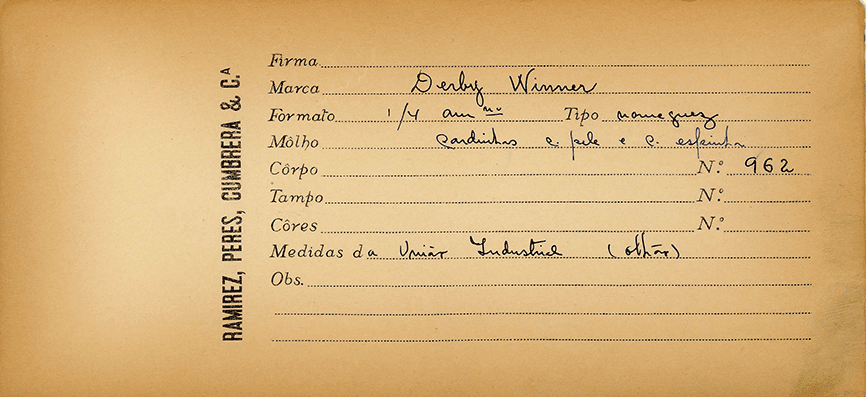 RAMIREZ, PERES, CUMBRERA & C.ᴬ
Firma
Marca Derby Winner
Formato 1/4 am Tipo norueguez
Môlho Sardinhas c. pele e c. espinha
Côrpo N.º 962
Tampo N.º
Côres N.º
Medidas da União Industrial (Olhão)
Obs.